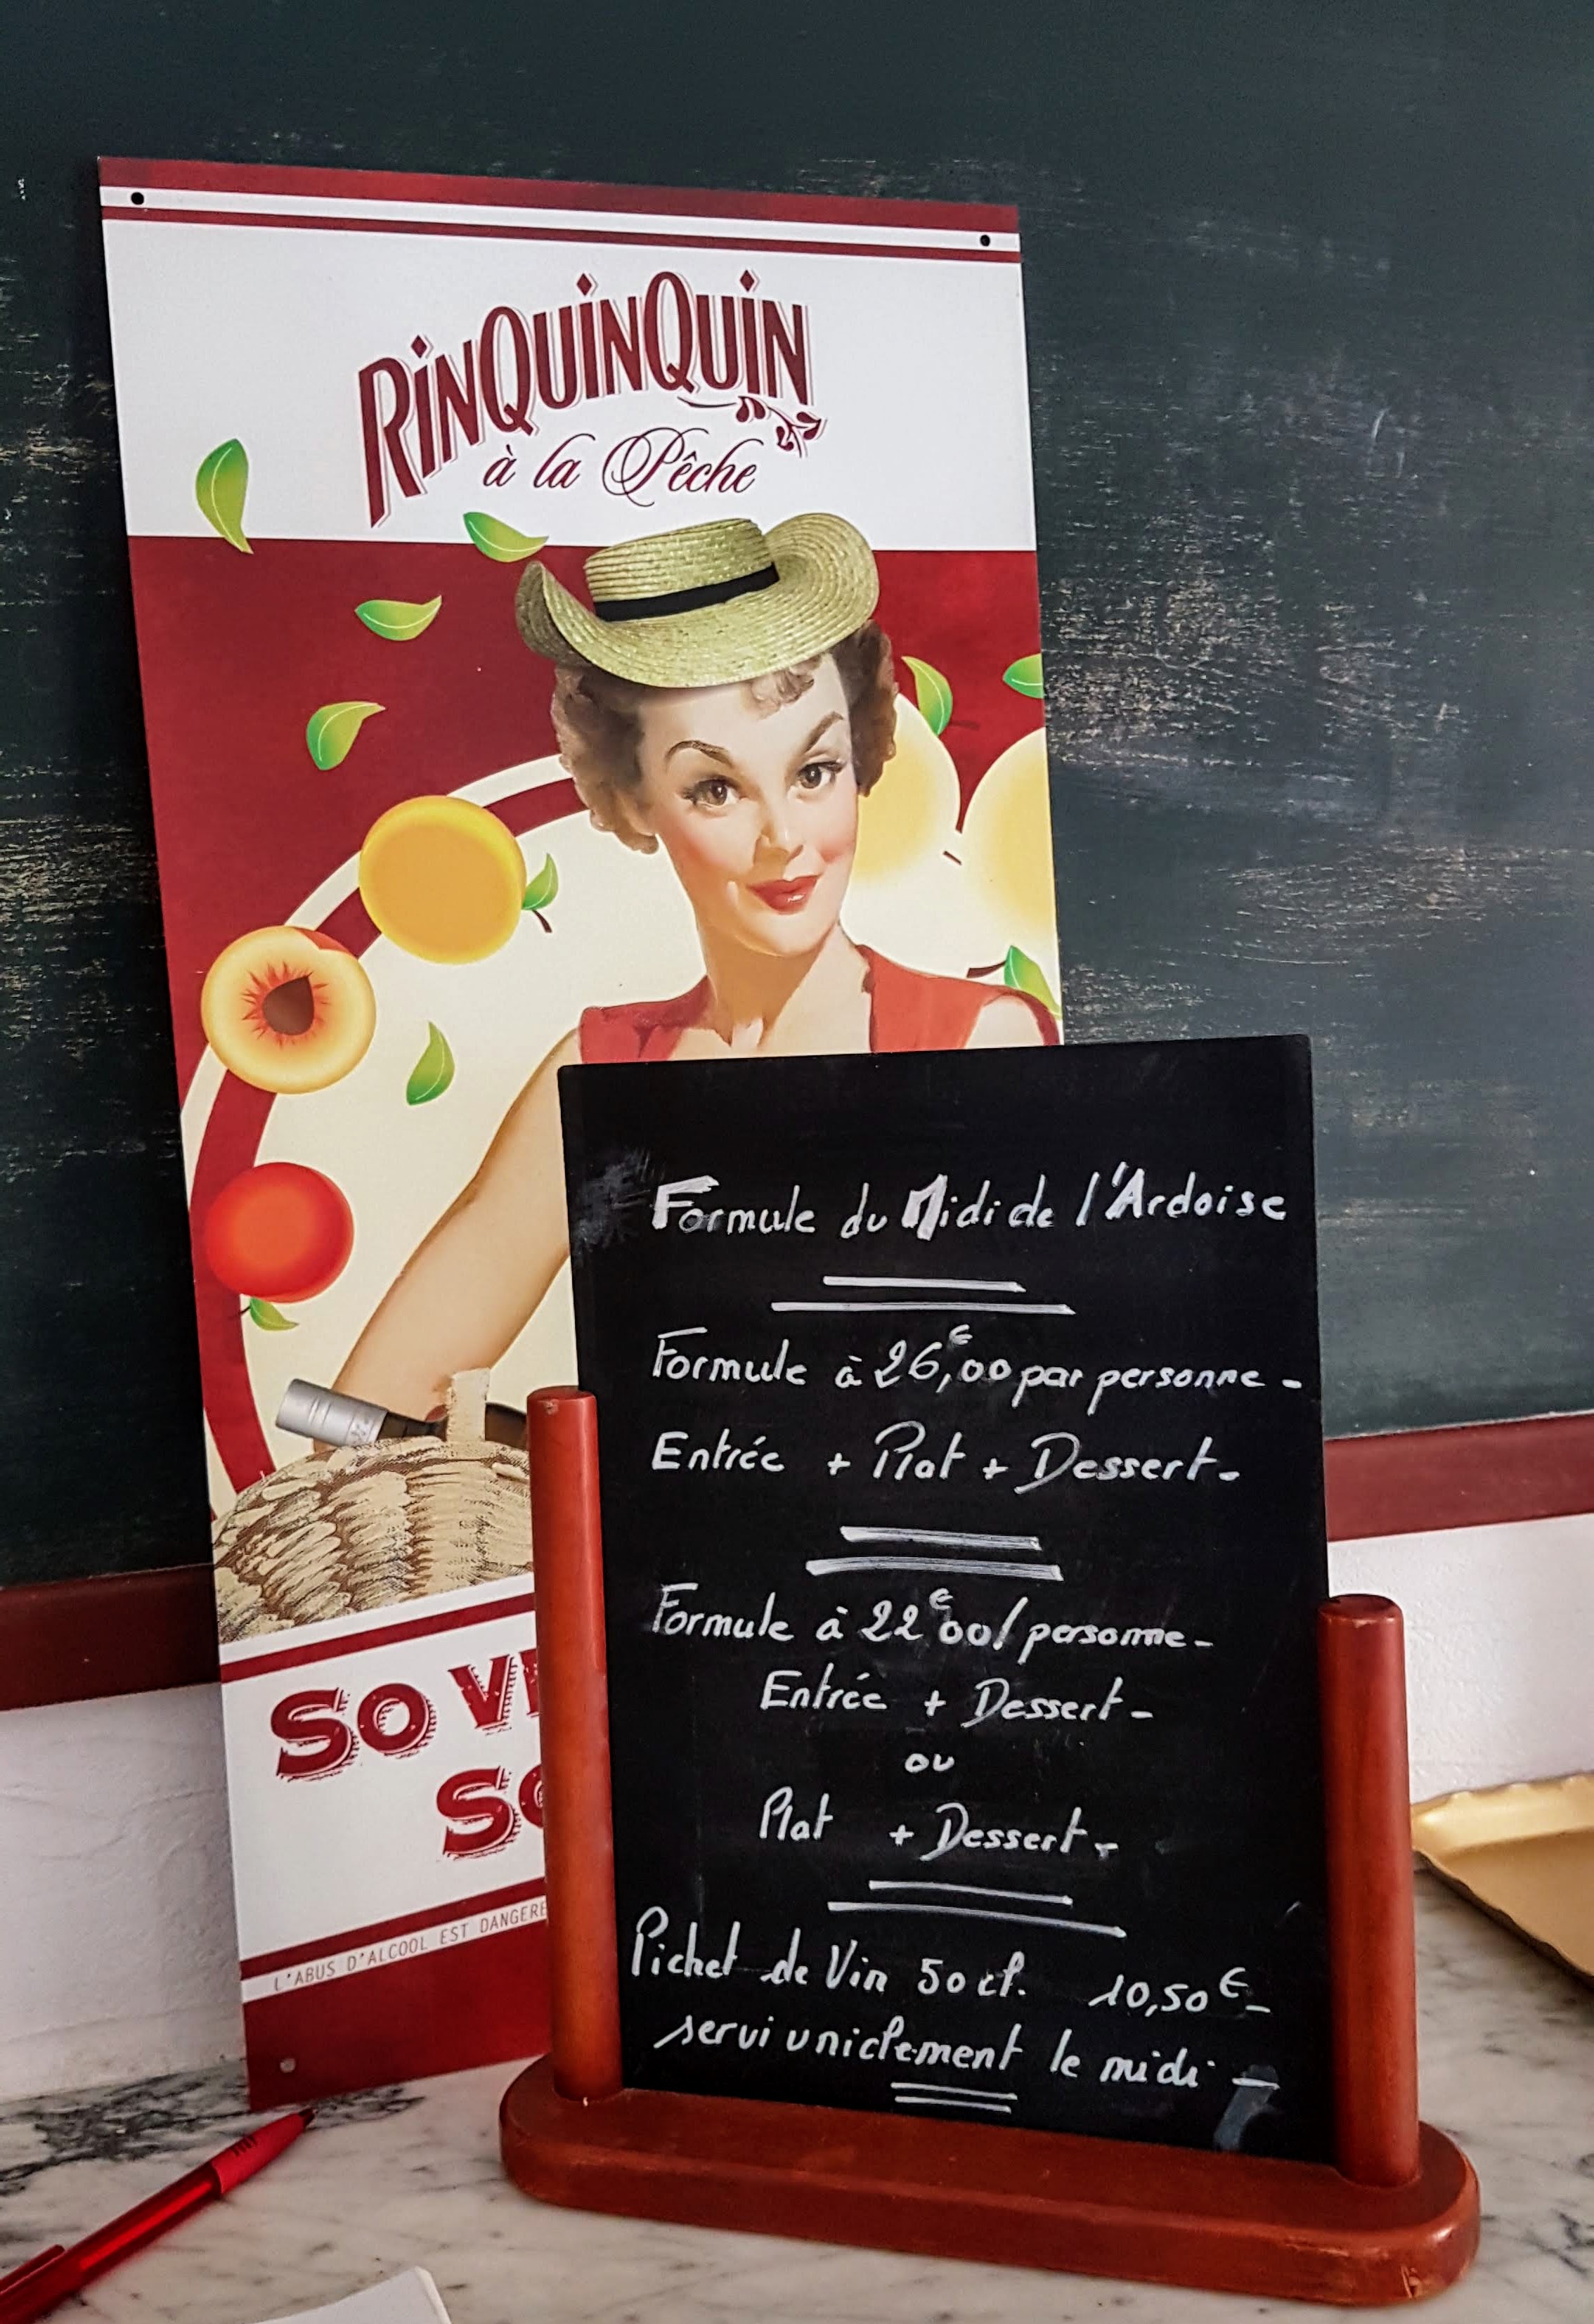 RinQuinQuin
à la Pêche
Formule du Midi de l'Ardoise
Formule à 26,€00 par personne -
Entrée + Plat + Dessert -
Formule à 22€00/personne -
Entrée + Dessert -
ou
Plat + Dessert -
Pichet de Vin 50 cl. 10,50€ -
servi uniclement le midi -
So
L'ABUS D'ALCOOL EST